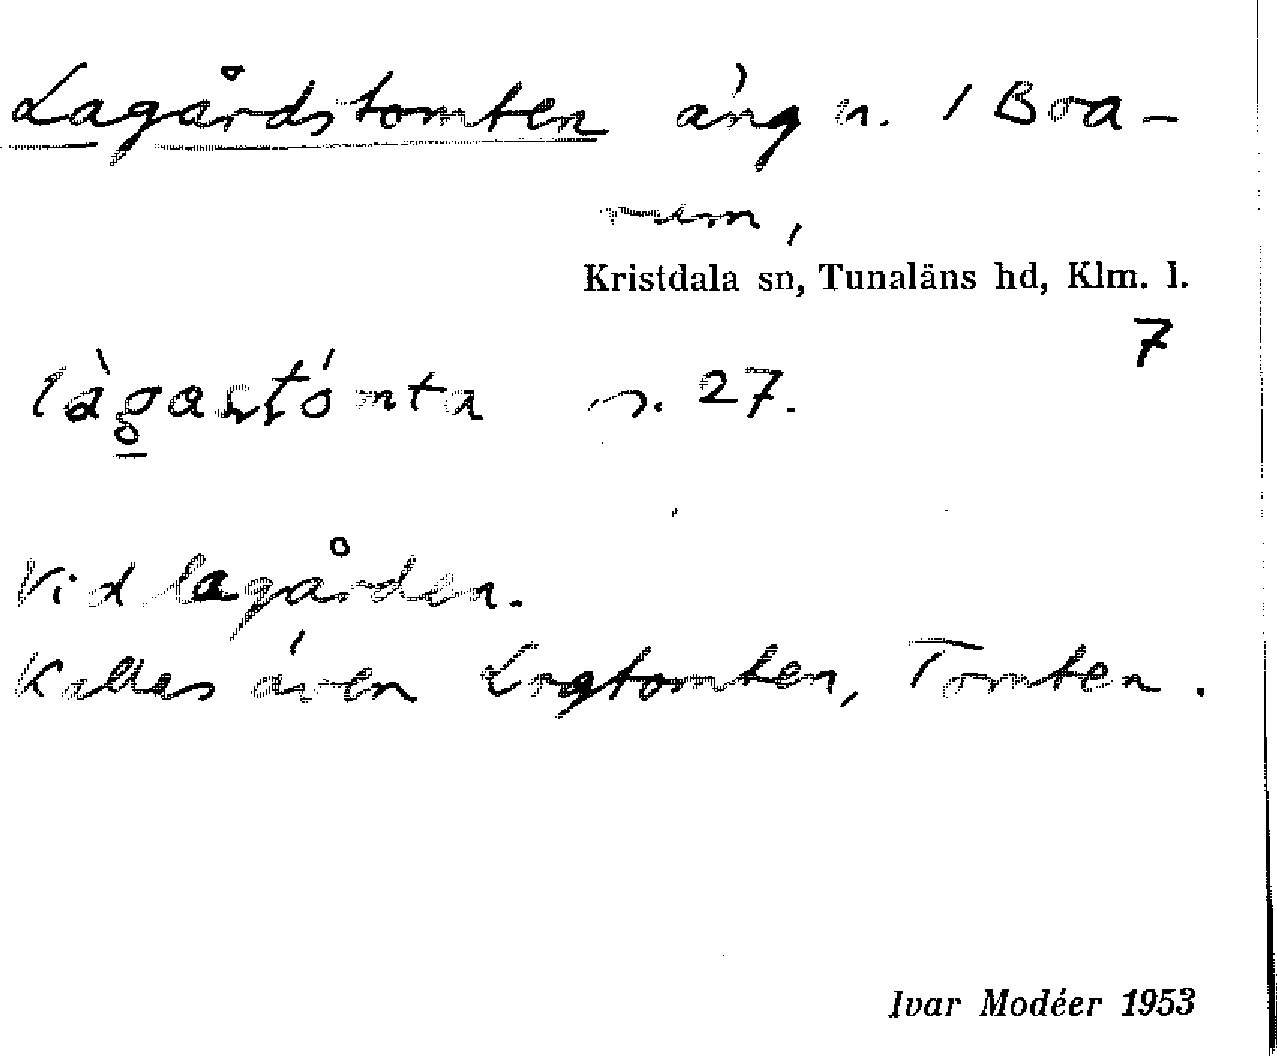 Lagårdstomten äng n. 1 Boa-
rum,
Kristdala sn, Tunaläns hd, Klm. l.
7
làgastómta s. 27.
Vid lagården.
Kallas även Logtomten, Tomten.
Ivar Modéer 1953